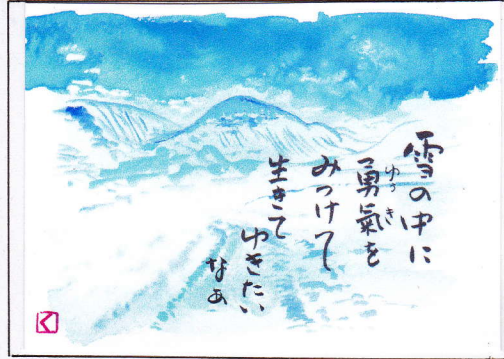 雪の中に
勇氣を
ゆうき
みつけて
生きて
ゆきたい
なあ
く